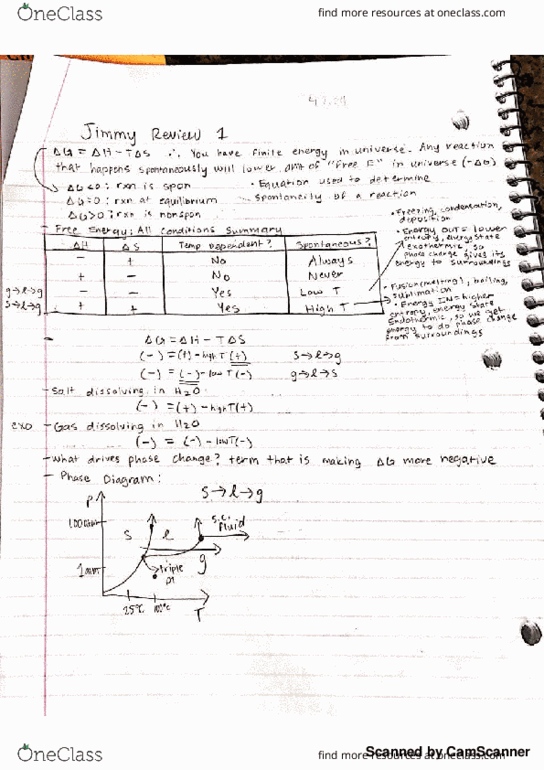 OneClass
find more resources at oneclass.com
Jimmy Review 1
ΔG = ΔH - TΔS ∴ You have finite energy in universe. Any reaction
that happens spontaneously will lower amt of "Free E" in universe (-ΔG)
ΔG<0: rxn is spon
• Equation used to determine
spontaneity of a reaction
ΔG=0: rxn at equilibrium
ΔG>0: rxn is nonspon
- Free Energy: All Conditions Summary
ΔH ΔS Temp Dependent? Spontaneous?
- + No Always
+ - No Never
g→l→g - - Yes Low T
s→l→g + + Yes High T
• Freezing, condensation,
deposition
• Energy OUT = lower
entropy, energy state
exothermic, so
phase change gives its
energy to surroundings
• Fusion (melting), boiling,
sublimation
• Energy IN = higher
entropy, energy state
Endothermic, so we get
energy to do phase change
from surroundings
- ΔG = ΔH - TΔS
(-) = (+) - high T (+) s→l→g
(-) = (-) - low T (-) g→l→s
- Salt dissolving in H2O
(-) = (+) - high T (+)
exo - Gas dissolving in H2O
(-) = (-) - low T (-)
- What drives phase change? term that is making ΔG more negative
- Phase Diagram:
s→l→g
P
s l
s.c. fluid
g
1 atm
triple
pt
25°C 100°C
T
Scanned by CamScanner
OneClass
find more resources at oneclass.com